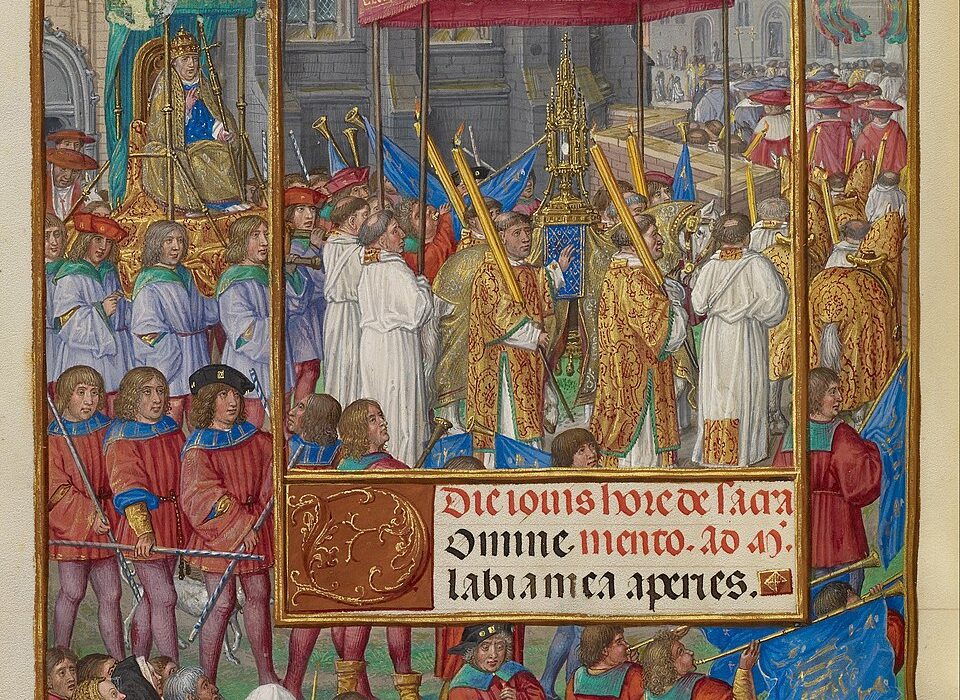 Die iouis hore de sacra
DOmine. mento. Ad M.
labia mea aperies.